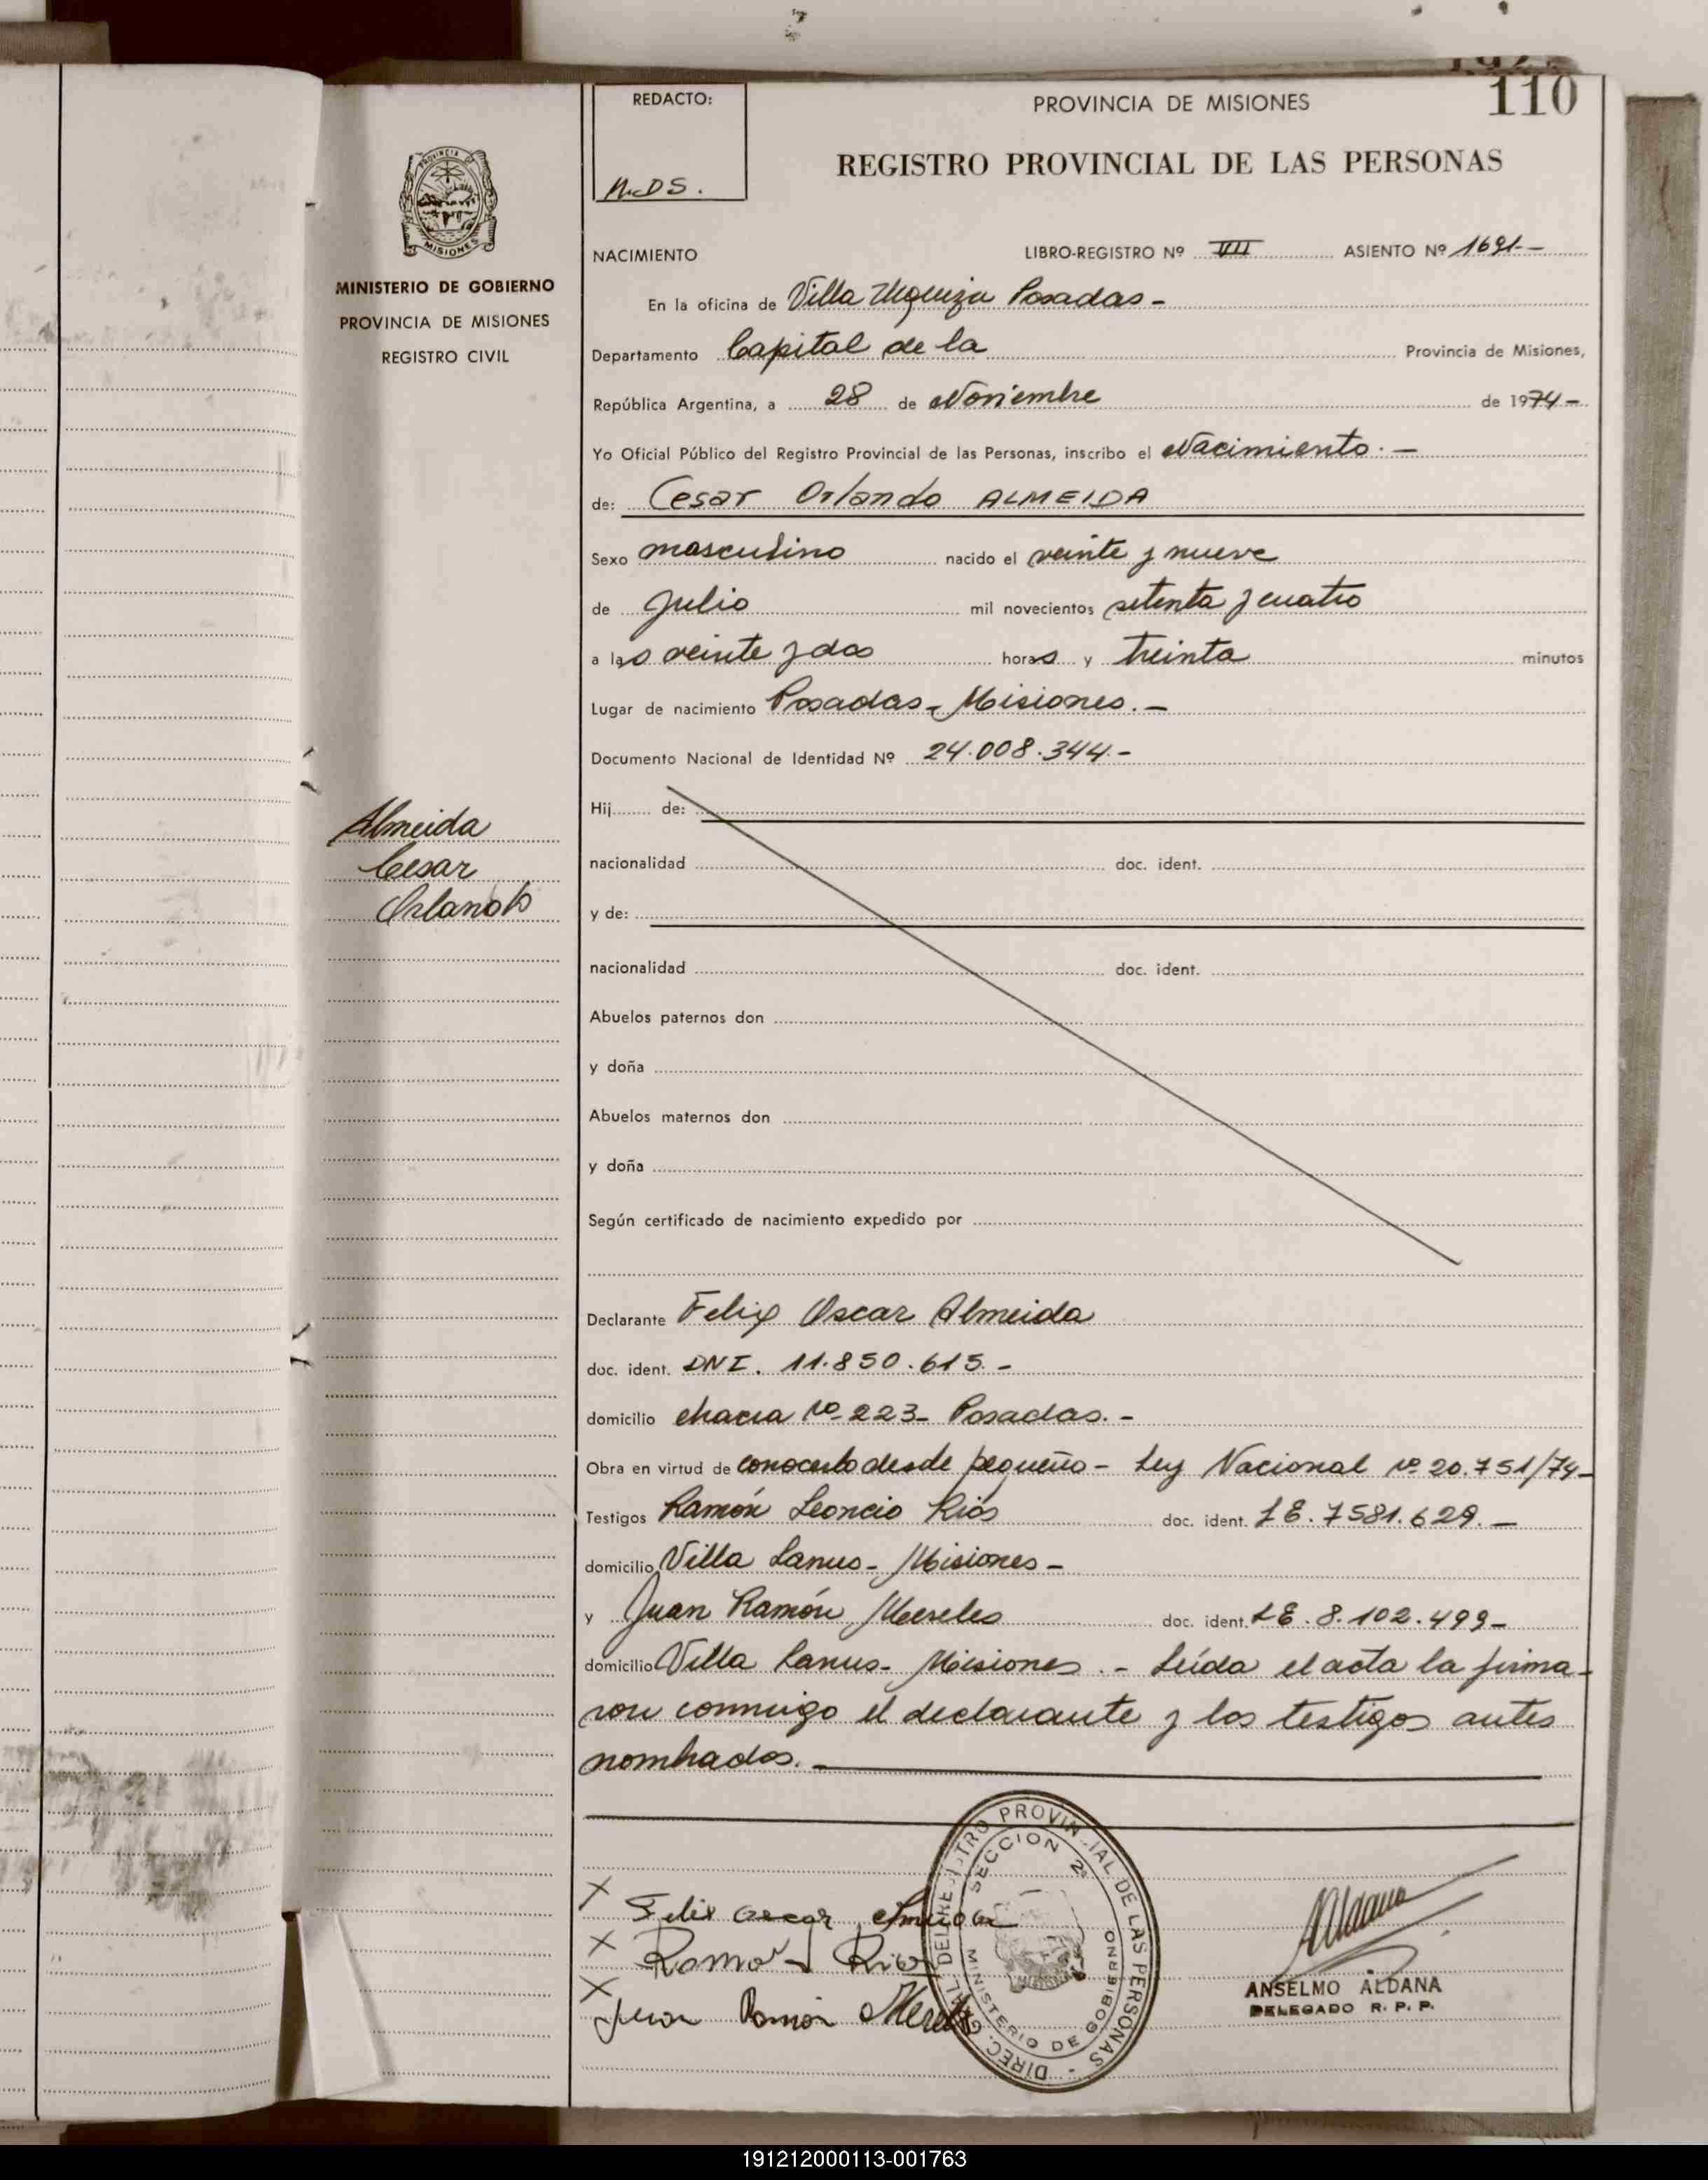 110
REDACTO:
PROVINCIA DE MISIONES
REGISTRO PROVINCIAL DE LAS PERSONAS
PROVINCIA DE
MISIONES
MINISTERIO DE GOBIERNO
PROVINCIA DE MISIONES
REGISTRO CIVIL
NACIMIENTO LIBRO-REGISTRO Nº VII ASIENTO Nº 1691.-
En la oficina de Villa Urquiza Posadas -
Departamento Capital de la Provincia de Misiones,
República Argentina, a 28 de Noviembre de 1974-
Yo Oficial Público del Registro Provincial de las Personas, inscribo el Nacimiento. -
de: Cesar Orlando ALMEIDA
Sexo masculino nacido el veinte y nueve
de Julio mil novecientos setenta y cuatro
a las veinte y dos horas y treinta minutos
Lugar de nacimiento Posadas - Misiones. -
Documento Nacional de Identidad Nº 24.008.344.-
Almeida
Cesar
Orlando
Hij de:
nacionalidad doc. ident.
y de:
nacionalidad doc. ident.
Abuelos paternos don
y doña
Abuelos maternos don
y doña
Según certificado de nacimiento expedido por
Declarante Felix Oscar Almeida
doc. ident. DNI. 11.850.615.-
domicilio chacra Nº 223- Posadas. -
Obra en virtud de conocerlo desde pequeño - Ley Nacional Nº 20.751/74-
Testigos Ramón Leoncio Ríos doc. ident. LE. 7581.629. -
domicilio Villa Lanus - Misiones -
y Juan Ramón Mereles doc. ident. LE. 8.102.499-
domicilio Villa Lanus - Misiones. - Leída el acta la firma-
ron conmigo el declarante y los testigos antes
nombrados. -
X Felix Oscar Almeida
X Ramon L Rios
X Juan Ramon Mereles
DIREC. GRAL. DEL REGISTRO PROVINCIAL DE LAS PERSONAS
SECCION 2ª
MINISTERIO DE GOBIERNO
Aldana
ANSELMO ALDANA
DELEGADO R. P. P.
191212000113-001763